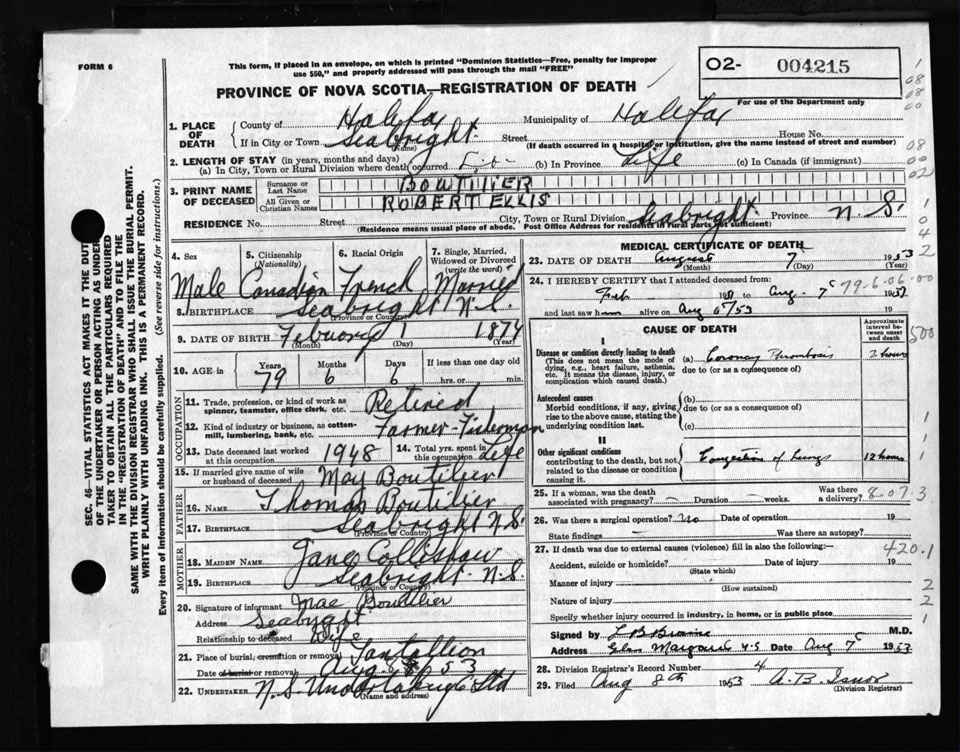 FORM 6
This form, if placed in an envelope, on which is printed "Dominion Statistics—Free, penalty for improper
use $50," and properly addressed will pass through the mail "FREE"
O2- 004215
For use of the Department only
PROVINCE OF NOVA SCOTIA—REGISTRATION OF DEATH
1. PLACE OF DEATH County of Halifax Municipality of Halifax
If in City or Town Seabright Street House No.
(Name) (If death occurred in a hospital or institution, give the name instead of street and number)
2. LENGTH OF STAY (in years, months and days)
(a) In City, Town or Rural Division where death occurred (b) In Province Life (c) In Canada (if immigrant)
3. PRINT NAME OF DECEASED Surname or Last Name BOWTILIER
All Given or Christian Names ROBERT ELLIS
RESIDENCE No. Street City, Town or Rural Division Seabright Province N.S.
(Residence means usual place of abode. Post Office Address for residents in rural parts not sufficient)
4. Sex 5. Citizenship (Nationality) 6. Racial Origin 7. Single, Married, Widowed or Divorced (write the word)
Male Canadian French Married
8. BIRTHPLACE Seabright N.S.
(Province or Country)
9. DATE OF BIRTH Febuary 1 1874
(Month) (Day) (Year)
10. AGE in Years Months Days If less than one day old
79 6 6 hrs. or min.
OCCUPATION
11. Trade, profession, or kind of work as spinner, teamster, office clerk, etc. Retired
12. Kind of industry or business, as cotton-mill, lumbering, bank, etc. Farmer-Fisherman
13. Date deceased last worked at this occupation 1948 14. Total yrs. spent in this occupation Life
15. If married give name of wife or husband of deceased May Boutilier
FATHER
16. NAME Thomas Boutilier
17. BIRTHPLACE Seabright N.S.
(Province or Country)
MOTHER
18. MAIDEN NAME Jane Collishaw
19. BIRTHPLACE Seabright N.S.
(Province or Country)
20. Signature of informant Mae Boutilier
Address Seabright
Relationship to deceased Wife
21. Place of burial, cremation or removal Tantallion
Date of burial or removal Aug 53
22. UNDERTAKER N.S. Undertaking Co Ltd
(Name and address)
MEDICAL CERTIFICATE OF DEATH
23. DATE OF DEATH August 7 1953
(Month) (Day) (Year)
24. I HEREBY CERTIFY that I attended deceased from:
Feb 19 to Aug. 7 19
and last saw him alive on Aug 53 19
79-6-06-00
CAUSE OF DEATH
Approximate interval between onset and death
I
Disease or condition directly leading to death (a) Coronary Thrombosis 2 hours
(This does not mean the mode of dying, e.g., heart failure, asthenia, etc. It means the disease, injury, or complication which caused death.)
due to (or as a consequence of)
Antecedent causes (b)
Morbid conditions, if any, giving rise to the above cause, stating the underlying condition last.
due to (or as a consequence of)
(c)
II
Other significant conditions
contributing to the death, but not related to the disease or condition causing it.
Congestion of Lungs 12 hours
25. If a woman, was the death associated with pregnancy? Duration weeks. Was there a delivery?
8-07.3
26. Was there a surgical operation? No Date of operation 19
State findings Was there an autopsy?
27. If death was due to external causes (violence) fill in also the following:—
420.1
Accident, suicide or homicide? Date of injury 19
(State which)
Manner of injury
(How sustained)
Nature of injury
Specify whether injury occurred in industry, in home, or in public place
Signed by M.D.
Address Glen Margaret N.S Date Aug 7 1953
28. Division Registrar's Record Number 4
29. Filed Aug 8th 1953 A.B.
(Division Registrar)
SEC. 46—VITAL STATISTICS ACT MAKES IT THE DUTY
OF THE UNDERTAKER OR PERSON ACTING AS UNDER-
TAKER TO OBTAIN ALL THE PARTICULARS REQUIRED
IN THE "REGISTRATION OF DEATH" AND TO FILE THE
SAME WITH THE DIVISION REGISTRAR WHO SHALL ISSUE THE BURIAL PERMIT.
WRITE PLAINLY WITH UNFADING INK. THIS IS A PERMANENT RECORD.
Every item of information should be carefully supplied. (See reverse side for instructions.)